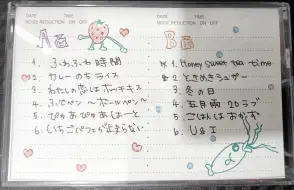 DATE TIME
NOISE REDUCTION ON OFF
DATE TIME
NOISE REDUCTION ON OFF
A面
1. ふわふわ時間
2. カレーのちライス
3. わたしの恋はホッチキス
4. ふでペン ～ボールペン～
5. ぴゅあぴゅあはーと
6. いちごパフェが止まらない
B面
1. Honey sweet tea time
2. ときめきシュガー
3. 冬の日
4. 五月雨 20ラブ
5. ごはんはおかず
6. U&I